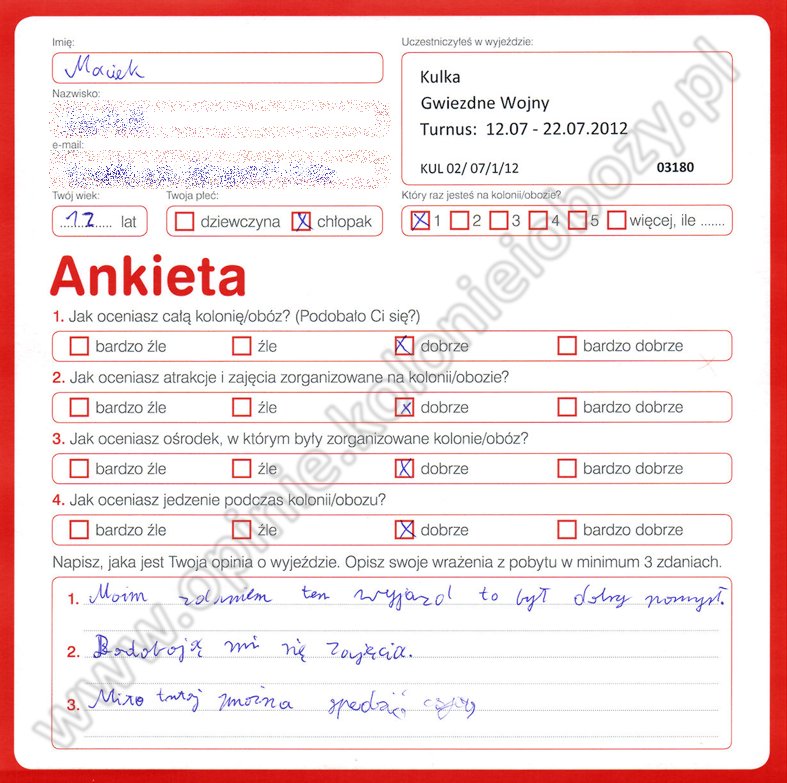 Imię:
Maciek
Uczestniczyłeś w wyjeździe:
Kulka
Gwiezdne Wojny
Turnus: 12.07 - 22.07.2012
KUL 02/ 07/1/12 03180
Nazwisko:
e-mail:
Twój wiek:
12 lat
Twoja płeć:
dziewczyna X chłopak
Który raz jesteś na kolonii/obozie?
X 1 2 3 4 5 więcej, ile .......
Ankieta
1. Jak oceniasz całą kolonię/obóz? (Podobało Ci się?)
bardzo źle źle X dobrze bardzo dobrze
2. Jak oceniasz atrakcje i zajęcia zorganizowane na kolonii/obozie?
bardzo źle źle X dobrze bardzo dobrze
3. Jak oceniasz ośrodek, w którym były zorganizowane kolonie/obóz?
bardzo źle źle X dobrze bardzo dobrze
4. Jak oceniasz jedzenie podczas kolonii/obozu?
bardzo źle źle X dobrze bardzo dobrze
Napisz, jaka jest Twoja opinia o wyjeździe. Opisz swoje wrażenia z pobytu w minimum 3 zdaniach.
1. Moim zdaniem ten wyjazd to był dobry pomysł.
2. Podobają mi się zajęcia.
3. Miło tutaj można spędzić
www.opinie.kolonieiobozy.pl